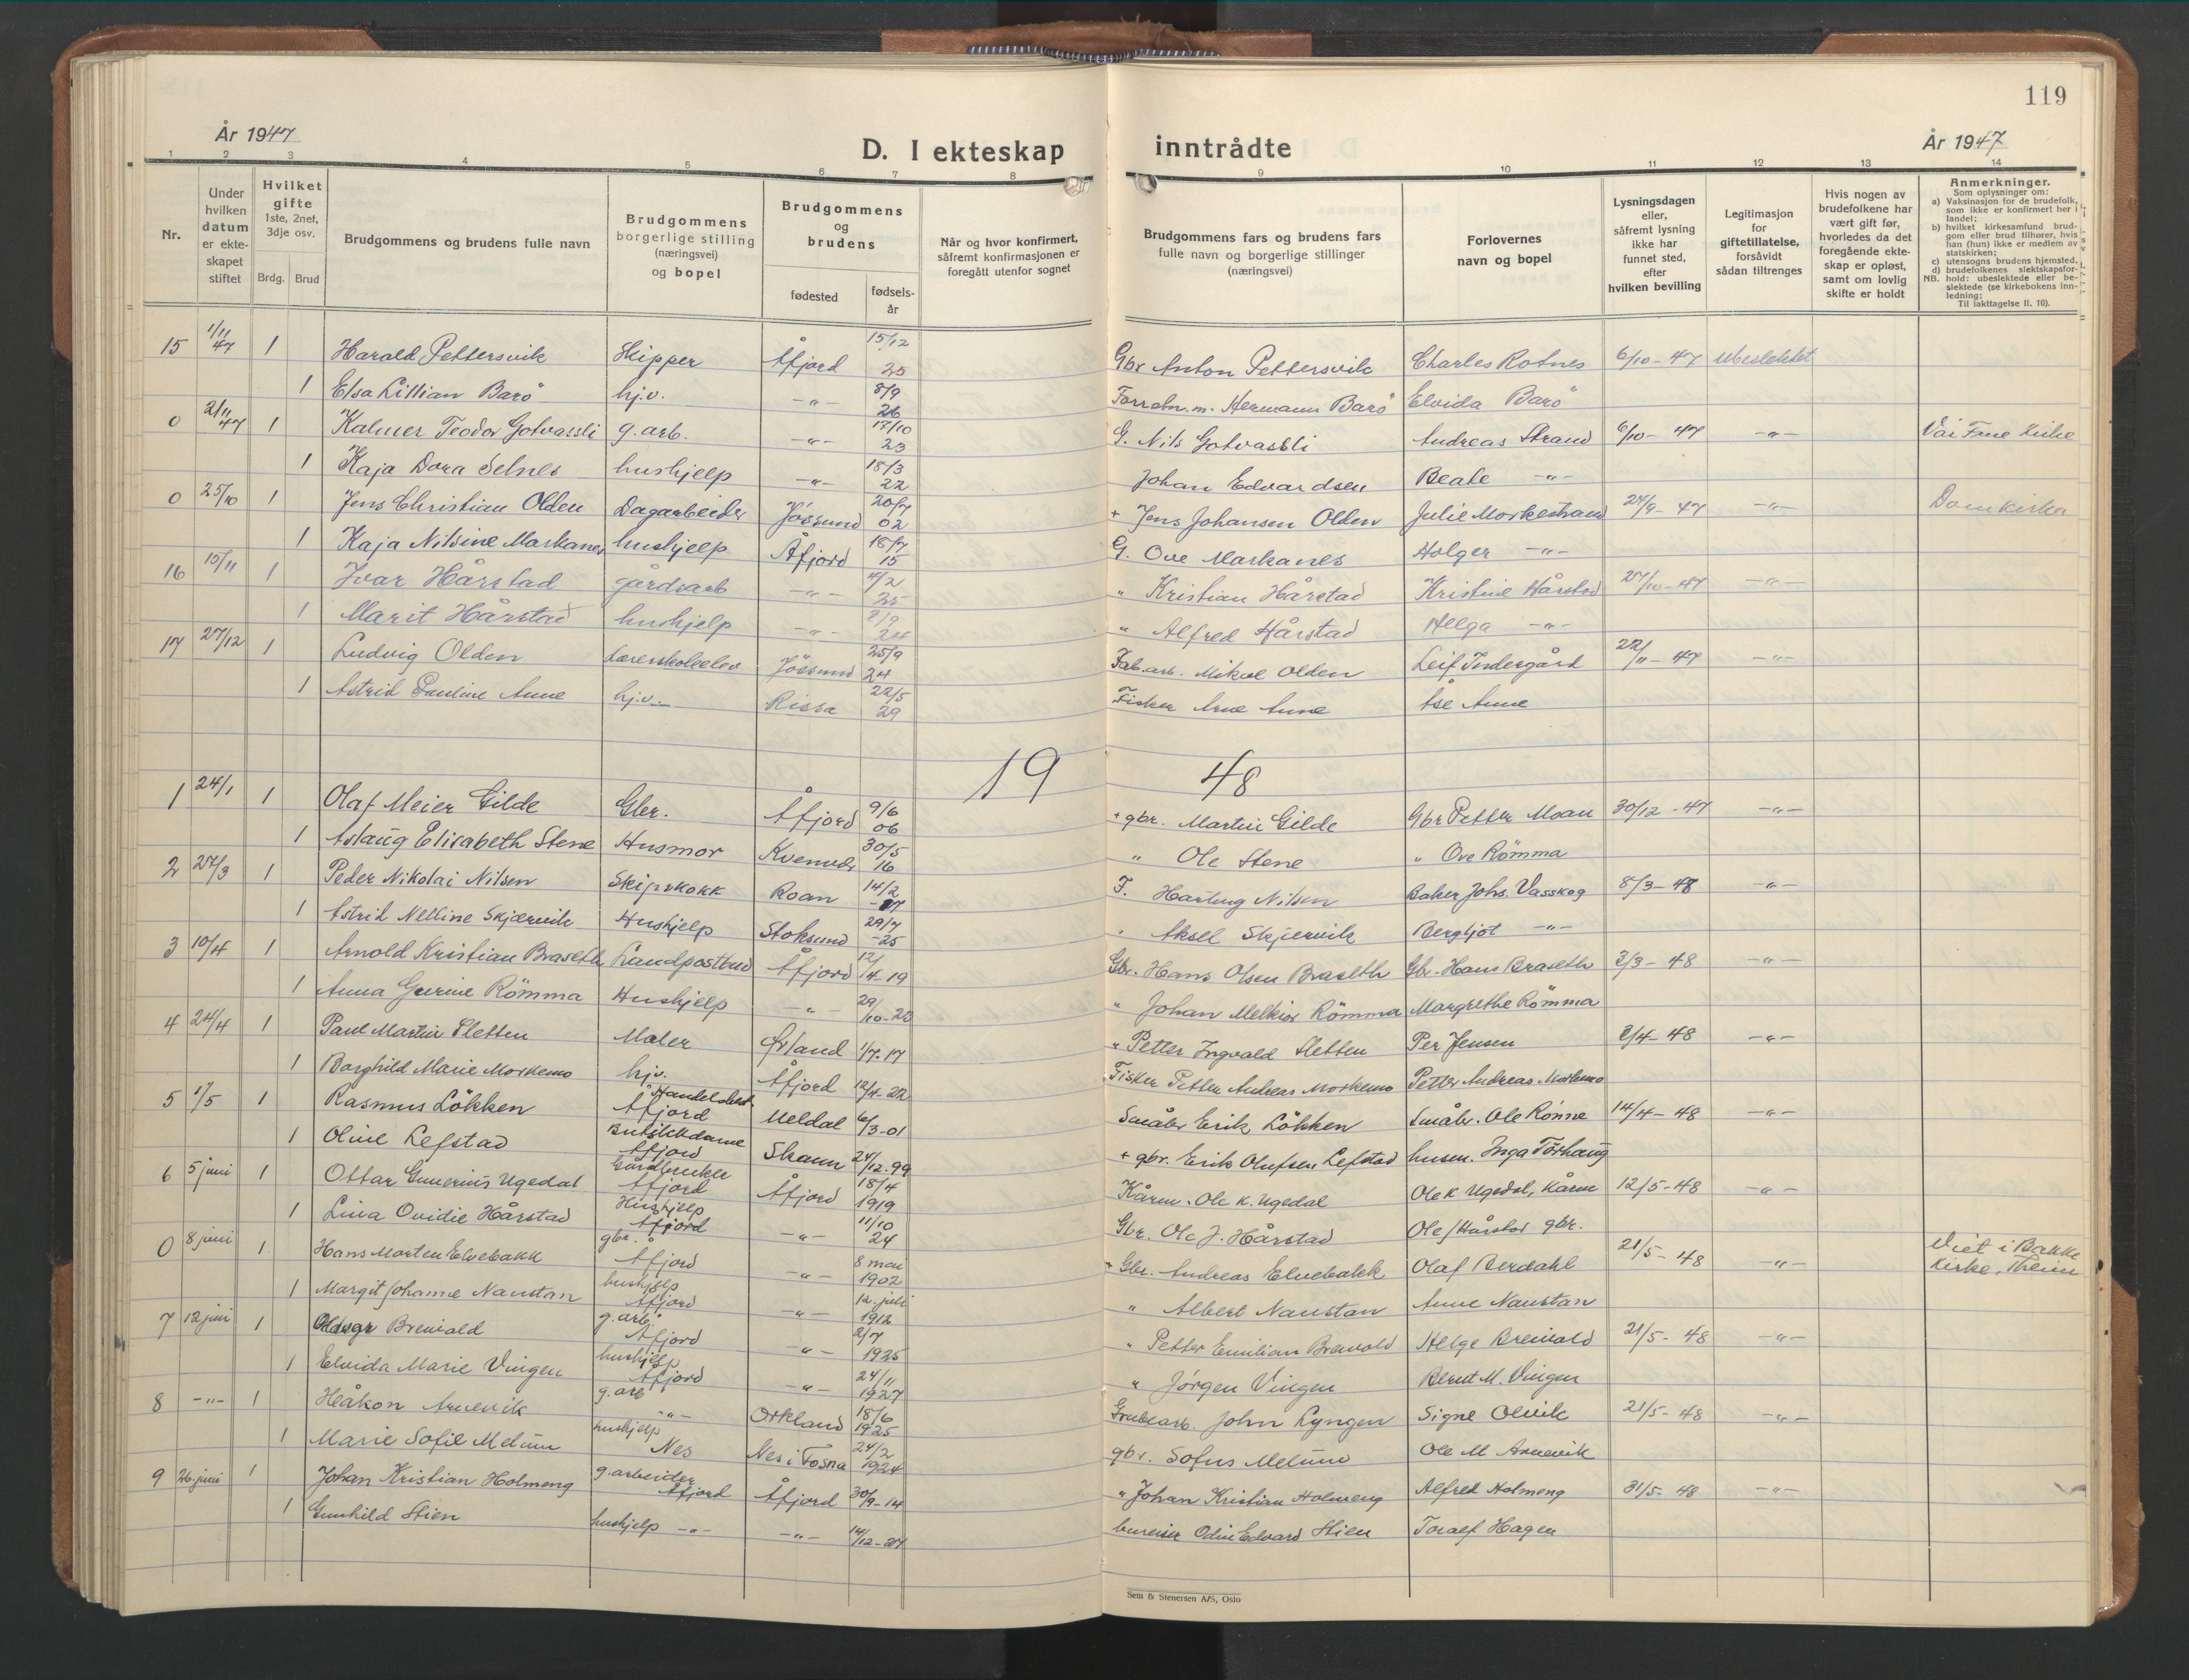 119
År 1947
D. I ekteskap inntrådte
År 1947
1 2 3 4 5 6 7 8 9 10 11 12 13 14
Nr.
Under hvilken datum er ekteskapet stiftet
Hvilket gifte 1ste, 2net, 3dje osv.
Brdg. Brud
Brudgommens og brudens fulle navn
Brudgommens borgerlige stilling (næringsvei) og bopel
Brudgommens og brudens
fødested
fødselsår
Når og hvor konfirmert, såfremt konfirmasjonen er foregått utenfor sognet
Brudgommens fars og brudens fars fulle navn og borgerlige stillinger (næringsvei)
Forlovernes navn og bopel
Lysningsdagen eller, såfremt lysning ikke har funnet sted, efter hvilken bevilling
Legitimasjon for giftetillatelse, forsåvidt sådan tiltrenges
Hvis nogen av brudefolkene har vært gift før, hvorledes da det foregående ekteskap er opløst, samt om lovlig skifte er holdt
Anmerkninger.
Som oplysninger om:
a) Vaksinasjon for de brudefolk, som ikke er konfirmert her i landet;
b) hvilket kirkesamfund brudgom eller brud tilhører, hvis han (hun) ikke er medlem av statskirken;
c) utensogns brudens hjemsted.
d) brudefolkenes slektskapsforhold: ubeslektede eller beslektede (se kirkebokens innledning;
NB.
Til iakttagelse II. 10).
15 1/11 47 1 Harald Pettersvik Skipper Åfjord 15/12 25 Gbr Anton Pettersvik Charles Rotnes 6/10-47 Ubeslektet
1 Elsa Lillian Barö hj.v. -"- 8/9 26 Forretn.m. Hermann Barö Elvida Barö
0 2/11 47 1 Kalmer Teodor Gotvassli g.arb. -"- 17/10 23 G. Nils Gotvassli Andreas Strand 6/10-47 -"- Vår Frue Kirke
1 Kaja Dora Selnes hushjelp -"- 18/3 22 Johan Edvardsen Beate -"-
0 25/10 1 Jens Christian Olden Dagarbeider Jössund 20/7 02 + Jens Johansen Olden Julie Morkestrand 27/9-47 -"- Domkirken
1 Kaja Nilsine Markanes hushjelp Åfjord 18/7 15 G. Ove Markanes Holger -"-
16 15/11 1 Ivar Hårstad gårdsarb -"- 4/2 25 " Kristian Hårstad Kristine Hårstad 27/10-47 -"-
1 Marit Hårstad hushjelp -"- 8/9 24 " Alfred Hårstad Helga -"-
17 27/12 1 Ludvig Olden Lærerskoleelev Jössund 25/9 24 Fab.arb. Mikal Olden Leif Indergård 22/11-47 -"-
1 Astrid Pauline Aune hj.v. Rissa 22/5 29 Fisker Arne Aune Åse Aune
1948
1 24/1 1 Olaf Meier Gilde Gbr. Åfjord 9/6 06 + gbr. Martin Gilde Gbr Petter Moan 30/12-47 -"-
1 Aslaug Elisabeth Stene Husmor Kvenvær 30/5 16 " Ole Stene " Ove Römma
2 27/3 1 Peder Nikolai Nilsen Skipskokk Roan 14/2 -17 F. Hartvig Nilsen Baker Johs. Vasskog 8/3-48 -"-
1 Astrid Nelline Skjærvik Hushjelp Stoksund 29/7 -25 " Aksel Skjærvik Bergljot -"-
3 10/4 1 Arnold Kristian Braseth Landpostbud Åfjord 12/4-19 Gbr. Hans Olsen Braseth Gbr. Hans Braseth 3/3-48 -"-
1 Anna Gurine Römma Hushjelp -"- 29/10-20 " Johan Melkior Römma Margrethe Römma
4 24/4 1 Paul Martin Sletten Maler Ørland 1/7-17 " Petter Ingvald Sletten Per Jensen 8/4-48 -"-
1 Borghild Marie Morkemo hj.v. Åfjord 12/4-22 Fisker Petter Andreas Morkemo Petter Andreas Morkemo
5 1/5 1 Rasmus Lökken Handelsbest. Åfjord Meldal 6/3-01 Småbr Erik Lökken Småbr. Ole Rönne 14/4-48 -"-
1 Oline Lefstad Butikkdame Åfjord Skaun 24/12-99 + gbr. Erik Olufsen Lefstad husm. Inga Törhaug
6 5 juni 1 Ottar Gunerius Ugedal Gårdbruker Åfjord Åfjord 18/4 1919 Kårm. Ole K. Ugedal Ole K Ugedal, Kårm 12/5-48 -"-
1 Lina Ovidie Hårstad Hushjelp Åfjord -"- 11/10 24 Gbr. Ole J. Hårstad Ole J Hårstad gbr.
0 8 juni 1 Hans Morten Elvebakk gbr. Åfjord -"- 8 mai 1902 + Gbr. Andreas Elvebakk Olaf Berdahl 21/5-48 -"- Viet i Bakke Kirke, Theim
1 Margit Johanne Naustan hushjelp Åfjord -"- 12. juli 1912 " Albert Naustan Anne Naustan
7 12 juni 1 Oldegr Breivold g.arb. Åfjord -"- 2/7 1925 " Petter Emilian Breivold Helge Breivold 21/5-48 -"-
1 Elvida Marie Vingen hushjelp Åfjord -"- 24/11 1927 " Jørgen Vingen Bernt M. Vingen
8 -"- 1 Håkon Arnevik g.arb -"- Orkland 18/6 1925 Grubearb. John Lyngen Signe Olvik 21/5-48 -"-
1 Marie Sofie Melum hushjelp Nes Nes i Fosna 24/2 1924 gbr. Sofus Melum Ole M Arnevik
9 26. juni 1 Johan Kristian Holmeng g.arbeider Åfjord Åfjord 30/9-14 " Johan Kristian Holmeng Alfred Holmeng 31/5-48 -"-
1 Gunhild Stien hushjelp -"- -"- 14/12-27 bureiser Odin Edvard Stien Toralf Hagen
Sem & Stenersen A/S, Oslo